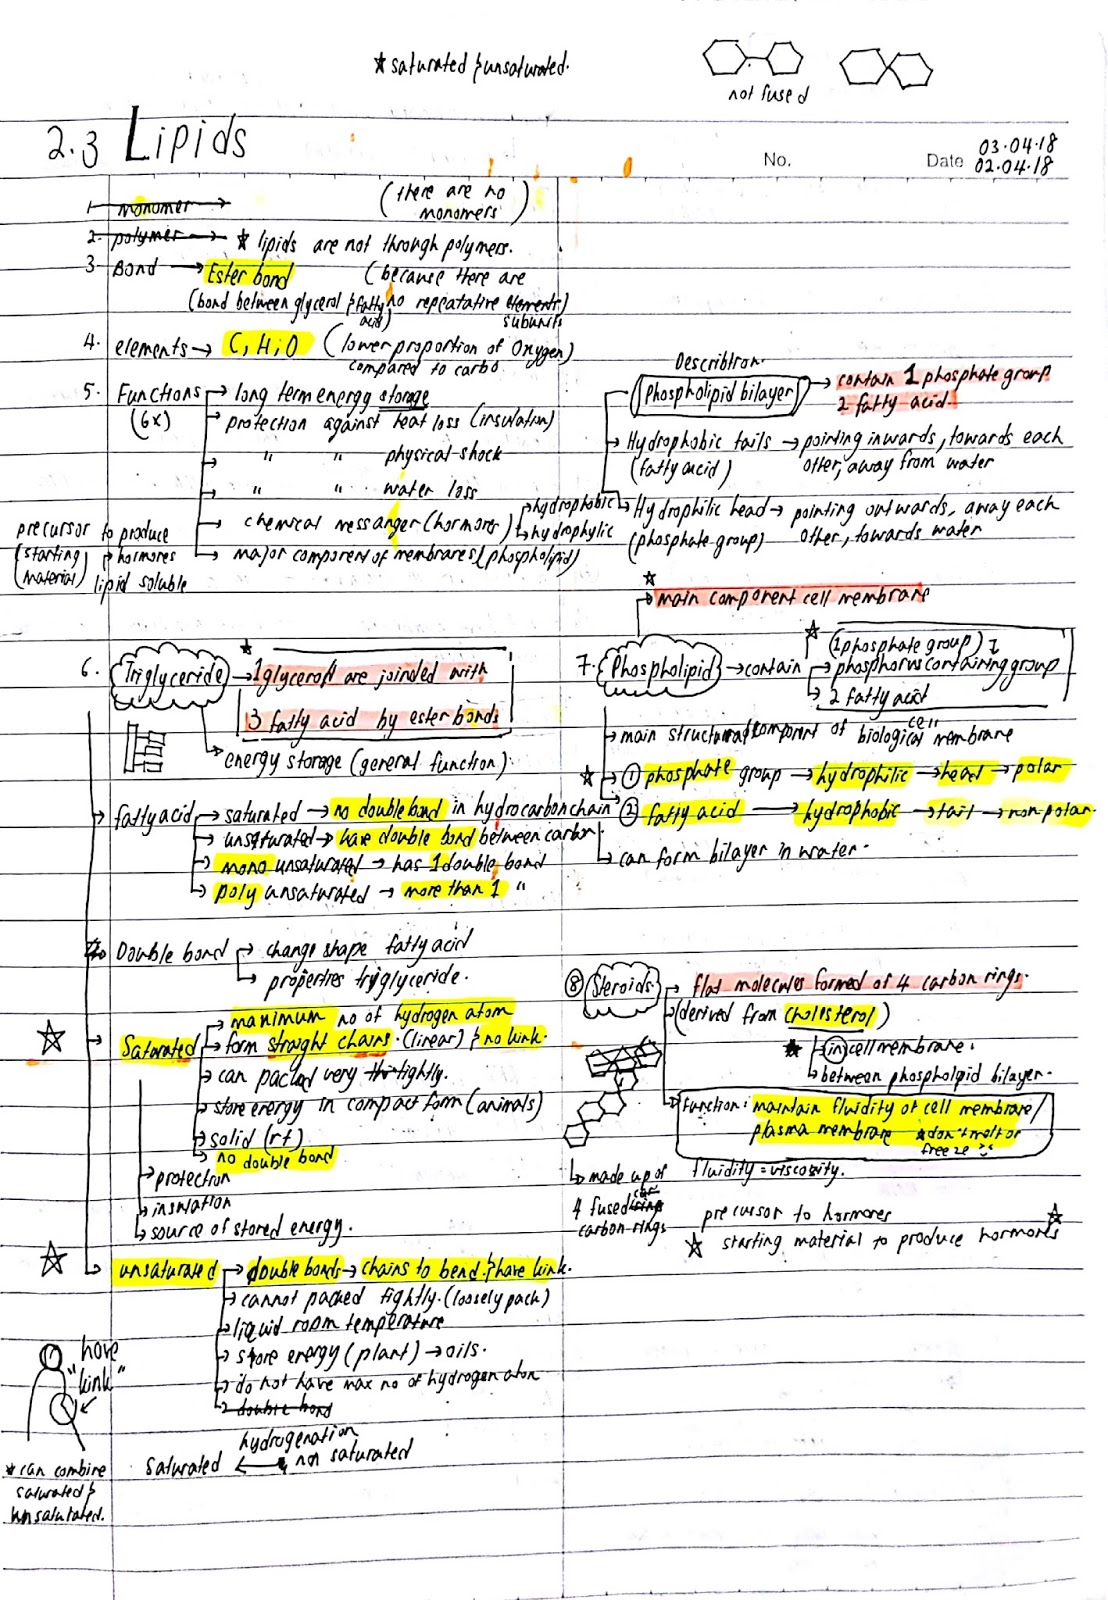 ★ saturated & unsaturated.
not fused
2.3 Lipids
No.
Date
03.04.18
02.04.18
1 monomer → (there are no
monomers)
2. polymer → ★ lipids are not through polymers.
3 Bond → Ester bond (because there are
(bond between glycerol & fatty acid) no repeatative elements)
subunits
4. elements → C, H, O (lower proportion of Oxygen)
compared to carbo
5. Functions → long term energy storage
(6x) protection against heat loss (insulation)
→ " " physical shock
→ " " water loss
→ chemical messanger (hormones) → hydrophobic
→ hydrophylic
→ major component of membranes (phospholipid)
precursor to produce
(starting material) hormones
lipid soluble
Describtion.
Phospholipid bilayer → contain 1 phosphate group
2 fatty acid
→ Hydrophobic tails → pointing inwards, towards each
(fatty acid) other, away from water
→ Hydrophilic head → pointing outwards, away each
(phosphate group) other, towards water
6. Triglyceride → ★ 1 glycerol are joinded with
3 fatty acid by ester bonds
→ energy storage (general function).
→ fatty acid → saturated → no double bond in hydrocarbon chain
→ unsaturated → have double bond between carbon.
→ mono unsaturated → has 1 double bond
→ poly unsaturated → more than 1 "
★
→ main component cell membrane
7. Phospholipid → contain ★ (1 phosphate group)
→ phosphorus containing group
→ 2 fatty acid
→ main structural component of biological cell membrane
★ → ① phosphate group → hydrophilic → head → polar
② fatty acid → hydrophobic → tail → non-polar.
→ can form bilayer in water.
→ Double bond → change shape fatty acid
→ properties triglyceride.
★ → Saturated → maximum no of hydrogen atom
→ form straight chains. (linear) & no kink.
→ can packed very tightly.
→ store energy in compact form (animals)
→ solid (rt)
→ no double bond
→ protection
→ insulation
→ source of stored energy.
★ → unsaturated → double bonds → chains to bend & have kink.
→ cannot packed tightly. (loosely pack)
→ liquid room temperature
→ store energy (plant) → oils.
→ do not have max no of hydrogen atom
→ double bond
hydrogenation
saturated ← not saturated
have
"kink"
★ can combine
saturated &
unsaturated.
⑧ Steroids → flat molecules formed of 4 carbon rings.
(derived from cholesterol)
★ → in cell membrane.
→ between phospholpid bilayer.
→ function: maintain fluidity of cell membrane/
plasma membrane ★ don't melt or
freeze
→ made up of
4 fused rings
carbon rings
fluidity = viscosity.
precursor to hormones
★ starting material to produce hormones ★